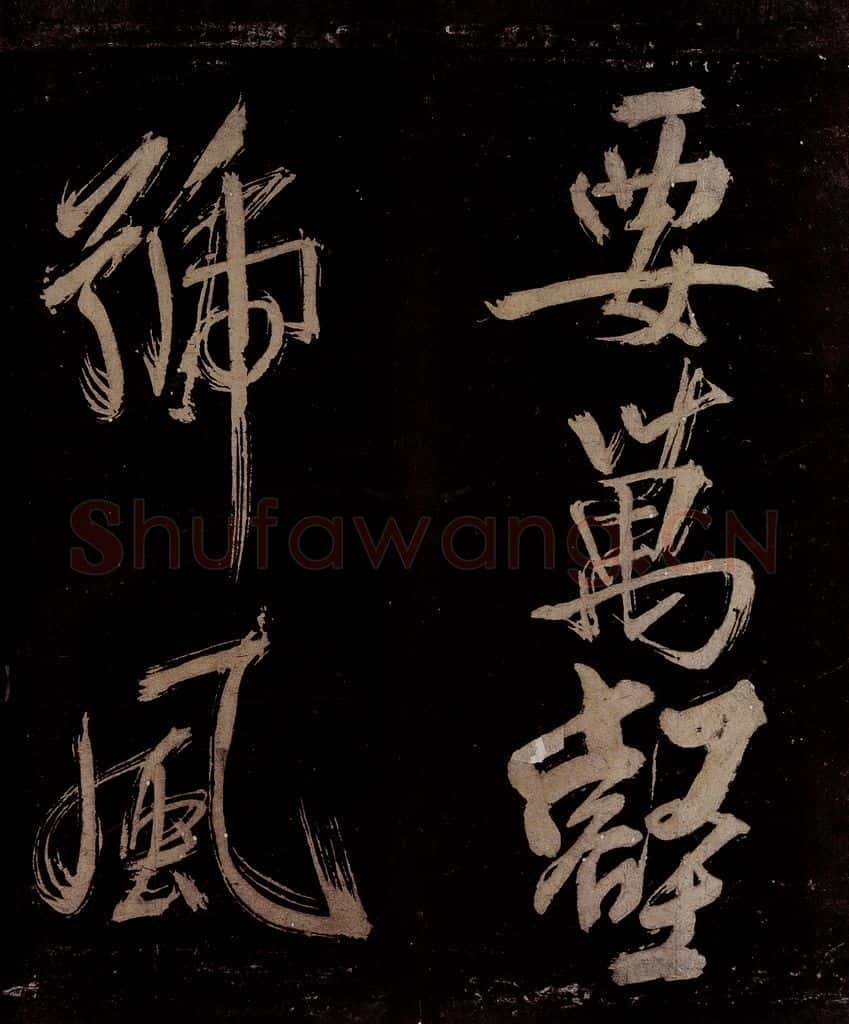 要萬壑
號風
Shufawang.CN